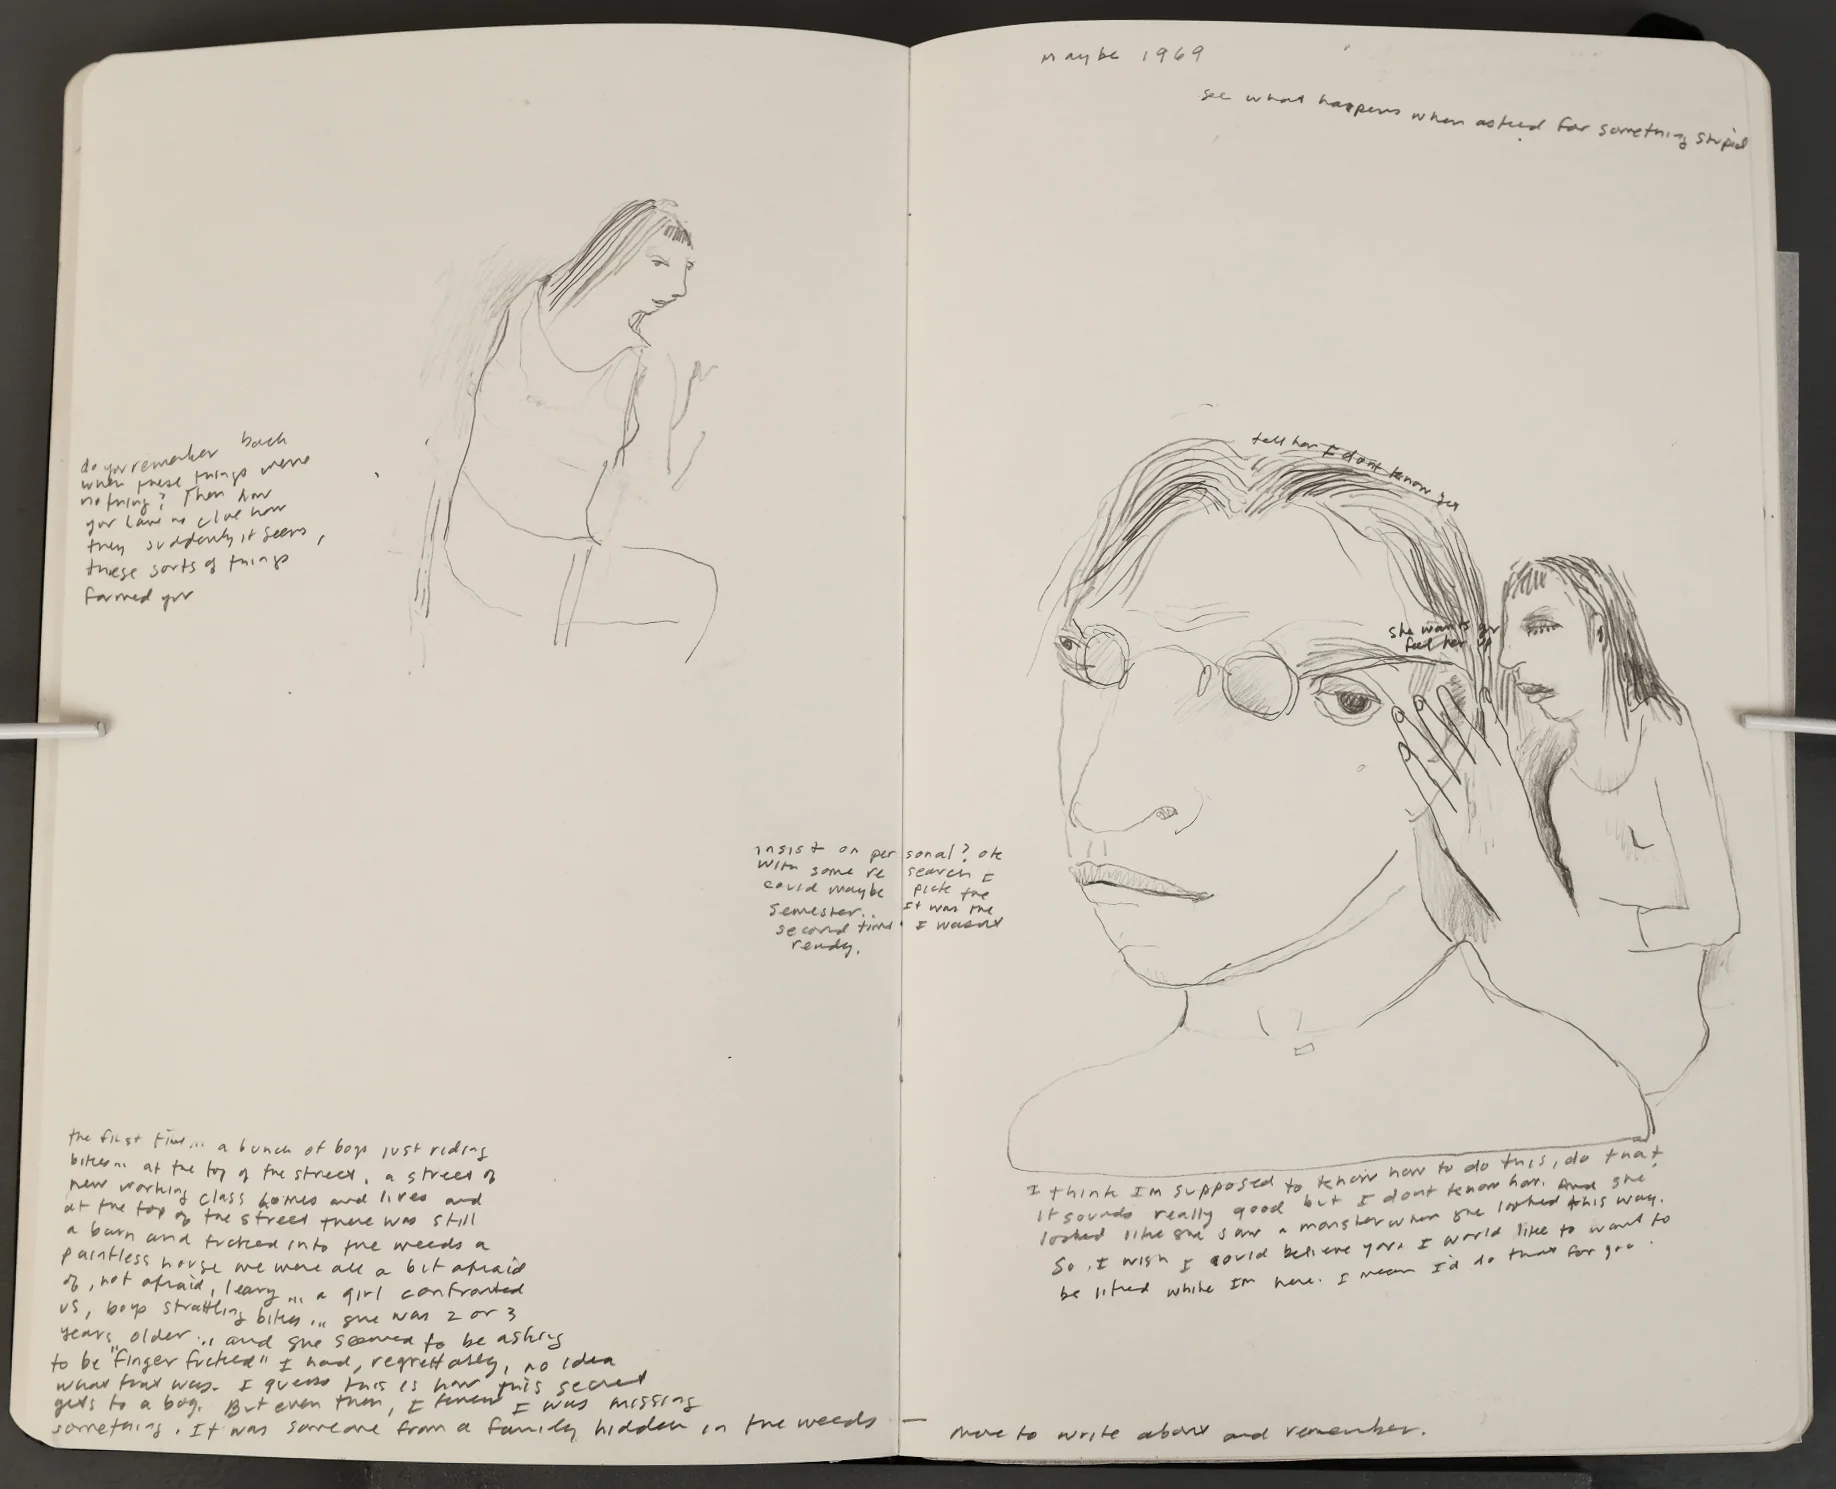 maybe 1969
see what happens when asked for something stupid
do you remember back
when these things were
nothing? Then how
you have no clue how
they suddenly it seems,
these sorts of things
formed you
tell her I dont know yes
she wants you
feel her up
insist on personal? ok
with some research I
could maybe pick the
semester.. It was the
second time I wasnt
ready.
the first time... a bunch of boys just riding
bikes... at the top of the street, a street of
new working class homes and lives and
at the top of the street there was still
a barn and tucked into the weeds a
paintless house we were all a bit afraid
of, not afraid, leary... a girl confronted
us, boys strattling bikes... she was 2 or 3
years older... and she seemed to be asking
to be "finger fucked" I had, regrettably, no idea
what that was. I guess this is how this secret
gets to a boy. But even then, I knew I was missing
something. It was someone from a family hidden in the weeds — more to write about and remember.
I think Im supposed to know how to do this, do that
It sounds really good but I dont know how. And she
looked like she saw a monster when she looked this way.
So, I wish I could believe you. I would like to want to
be liked while Im here. I mean I'd do that for you.